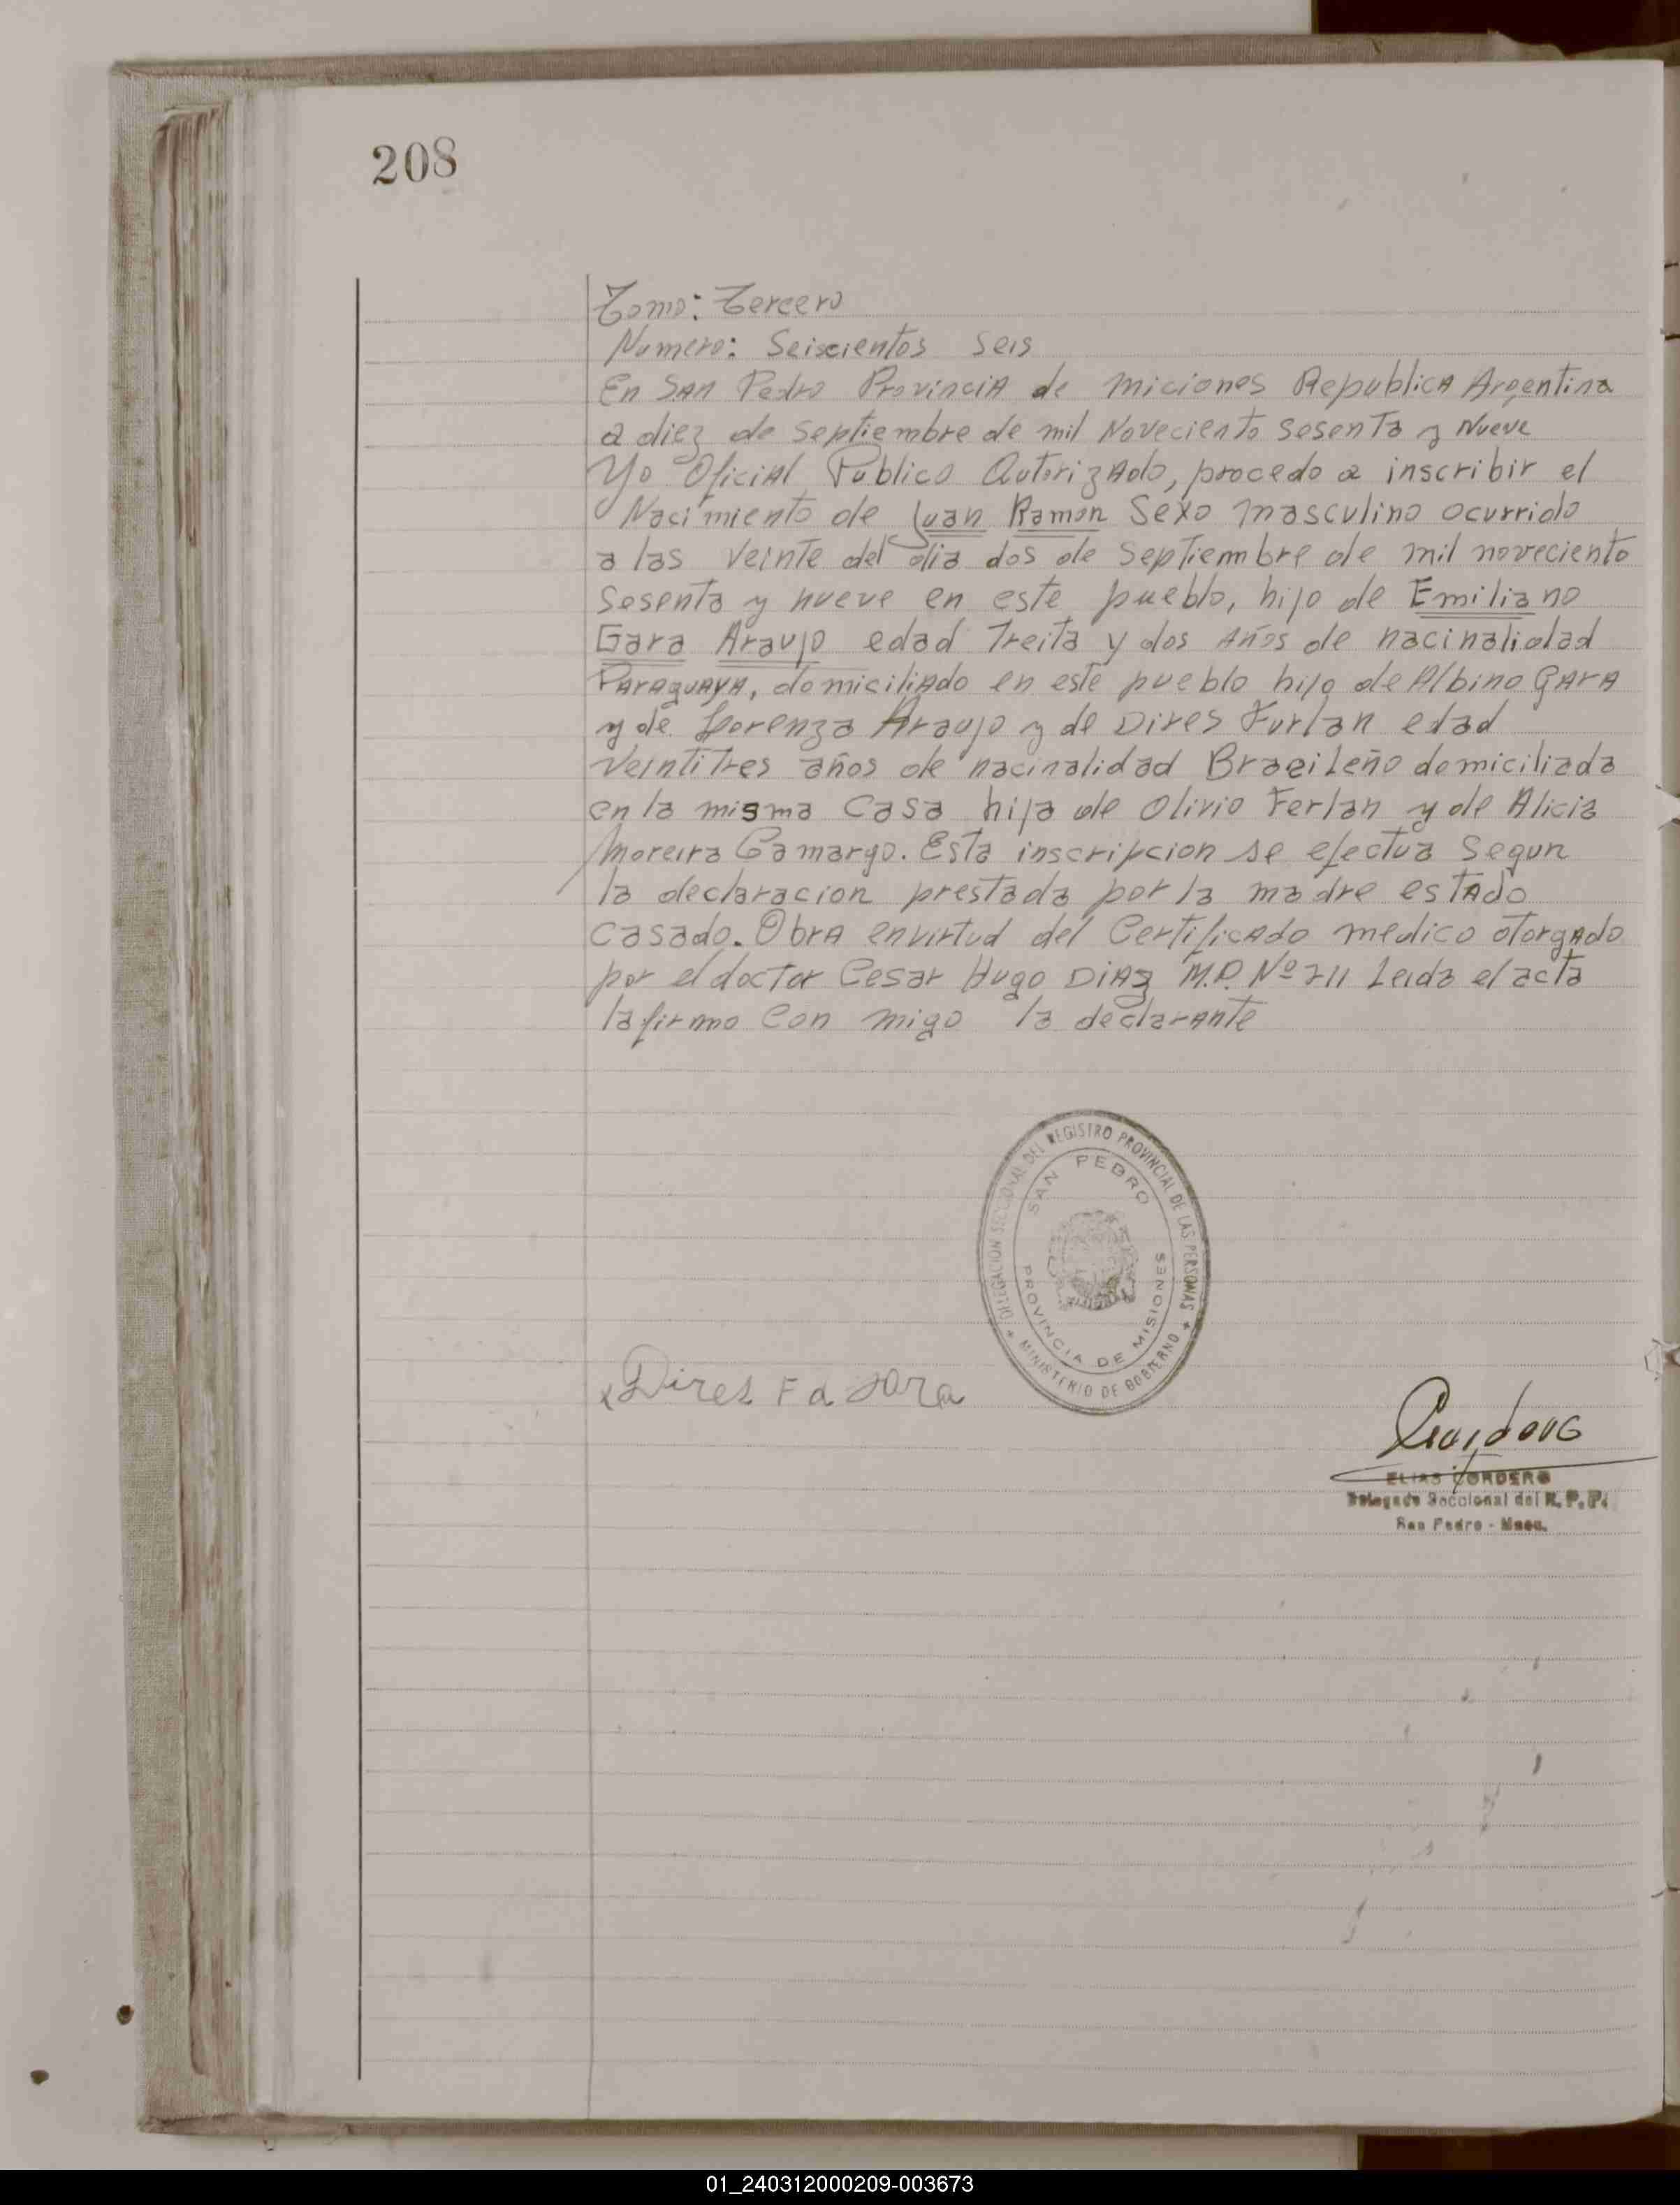 208
Tomo: Tercero
Numero: Seiscientos Seis
En San Pedro Provincia de Miciones Republica Argentina
a diez de septiembre de mil Noveciento sesenta y Nueve
Yo Oficial Publico Autorizado, procedo a inscribir el
Nacimiento de Juan Ramon Sexo masculino ocurrido
a las veinte del dia dos de septiembre de mil noveciento
sesenta y nueve en este pueblo, hijo de Emiliano
Gara Araujo edad Treita y dos Años de nacinalidad
Paraguaya, domiciliado en este pueblo hijo de Albino Gara
y de Lorenza Araujo y de Dires Furlan edad
veintitres años de nacinalidad Brazileño domiciliada
en la misma casa hija de Olivio Ferlan y de Alicia
Moreira Camargo. Esta inscripcion se efectua segun
la declaracion prestada por la madre estado
casado. Obra envirtud del Certificado medico otorgado
por el doctor Cesar Hugo Diaz M.P. Nº 711 Leida el acta
la firmo con migo la declarante
DELEGACION SECCIONAL DEL REGISTRO PROVINCIAL DE LAS PERSONAS
SAN PEDRO
PROVINCIA DE MISIONES
MINISTERIO DE GOBIERNO
Dires F d Jara
ELIAS CORDERO
Delegado Seccional del R.P.P.
San Pedro - Mnes.
01_240312000209-003673